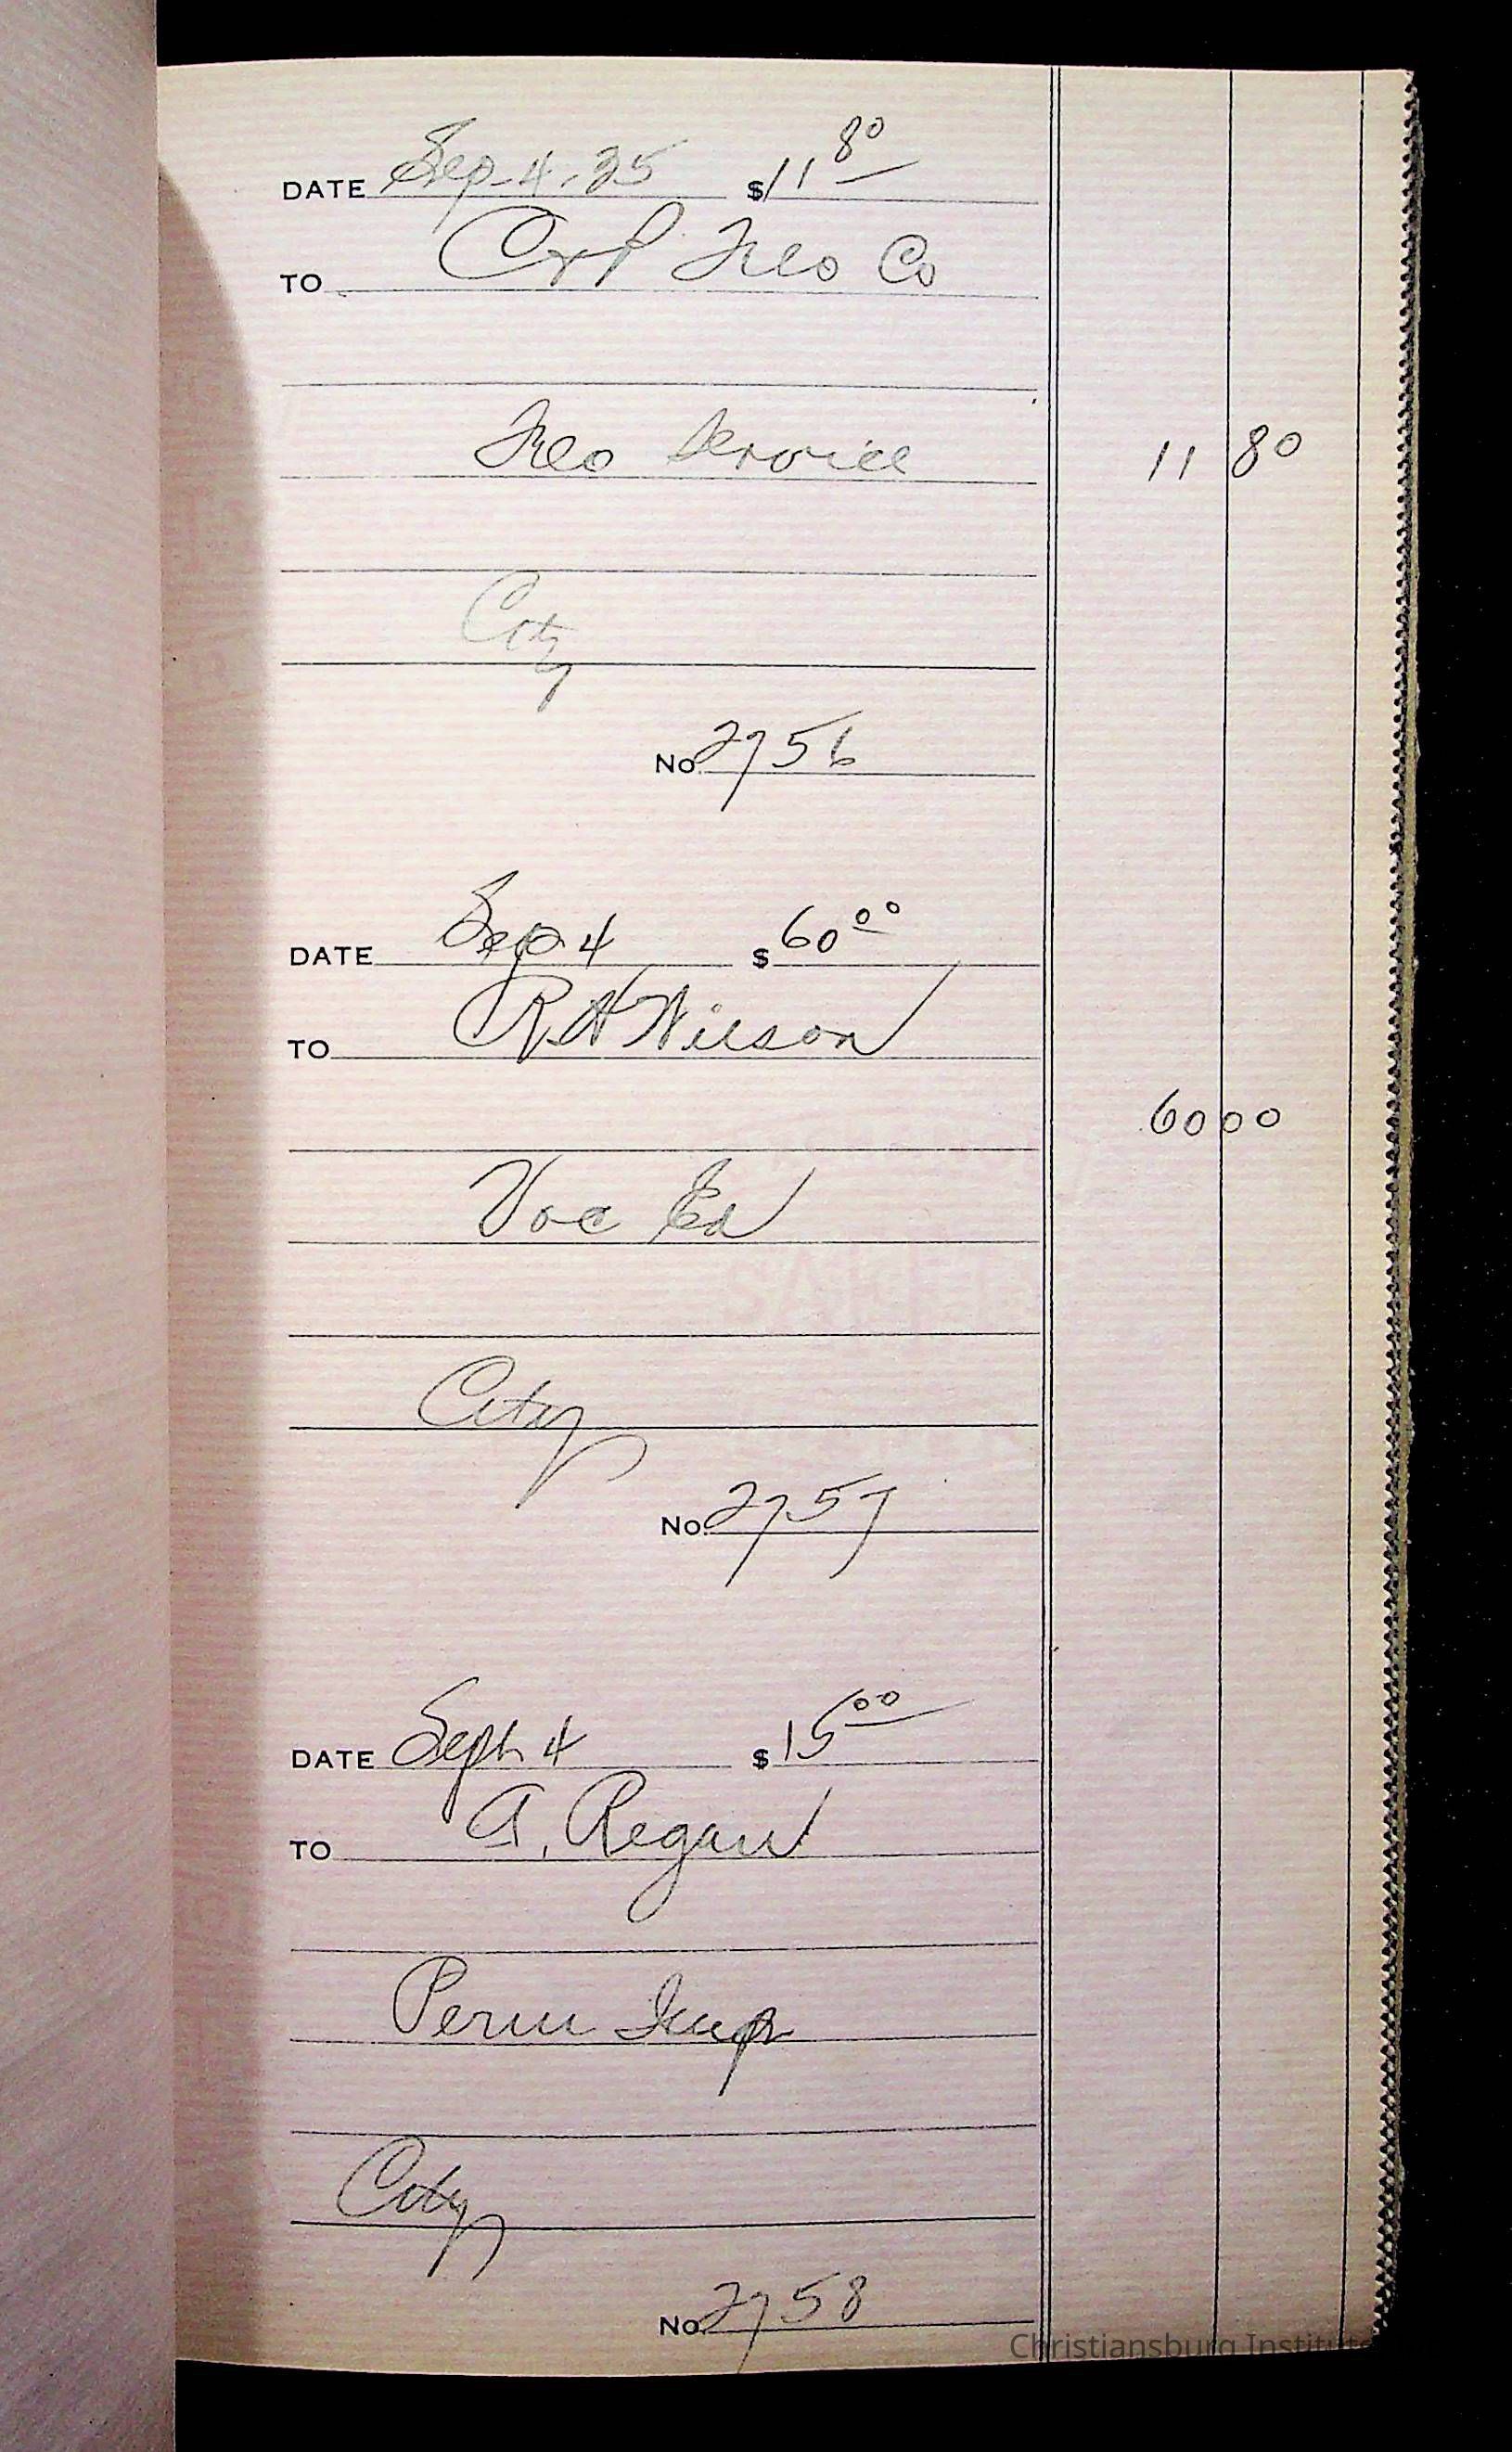 DATE Sep. 4. 35 $11 80
TO C & P Tele Co
Tele Service 11 80
City
No. 2756
DATE Sep 4 $60 00
TO R. H Wilson
60 00
Voc Ed
City
No. 2757
DATE Sept 4 $15 00
TO A. Regan
Perm Imp
City
No. 2758
Christiansburg Institute